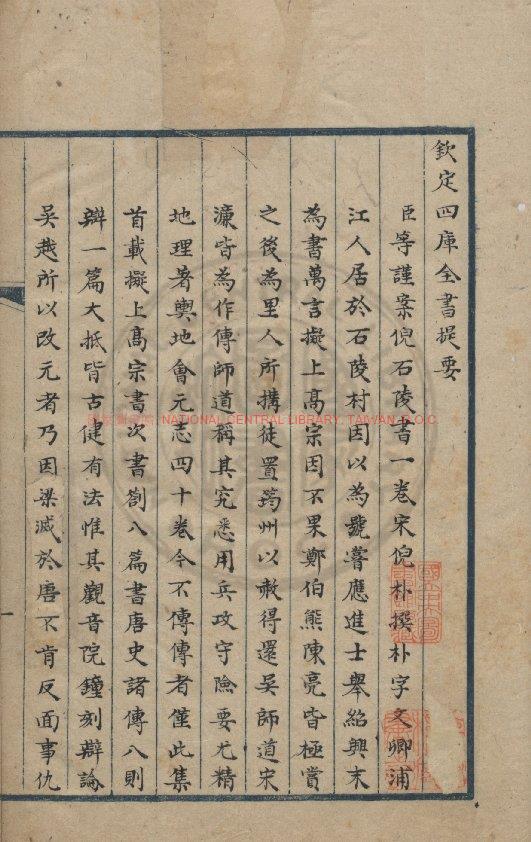 欽定四庫全書提要
臣等謹案倪石陵書一卷宋倪朴撰朴字文卿浦
江人居於石陵村因以為號嘗應進士舉紹興末
為書萬言擬上高宗因不果鄭伯熊陳亮皆極賞
之後為里人所搆徒置筠州以赦得還吳師道宋
濂皆為作傳師道稱其究悉用兵攻守險要尤精
地理著輿地會元志四十卷今不傳傳者僅此集
首載擬上高宗書次書劄八篇書唐史諸傳八則
辯一篇大抵皆古健有法惟其觀音院鐘刻辯論
吳越所以改元者乃因梁滅於唐不肯反面事仇
NATIONAL CENTRAL LIBRARY, TAIWAN, R.O.C